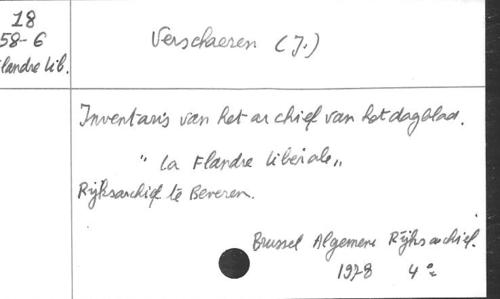 18
58-6
Flandre Lib.
Verschaeren (J.)
Inventaris van het archief van het dagblad.
"La Flandre Libérale"
Rijksarchief te Beveren.
Brussel Algemeen Rijksarchief.
1978 4°